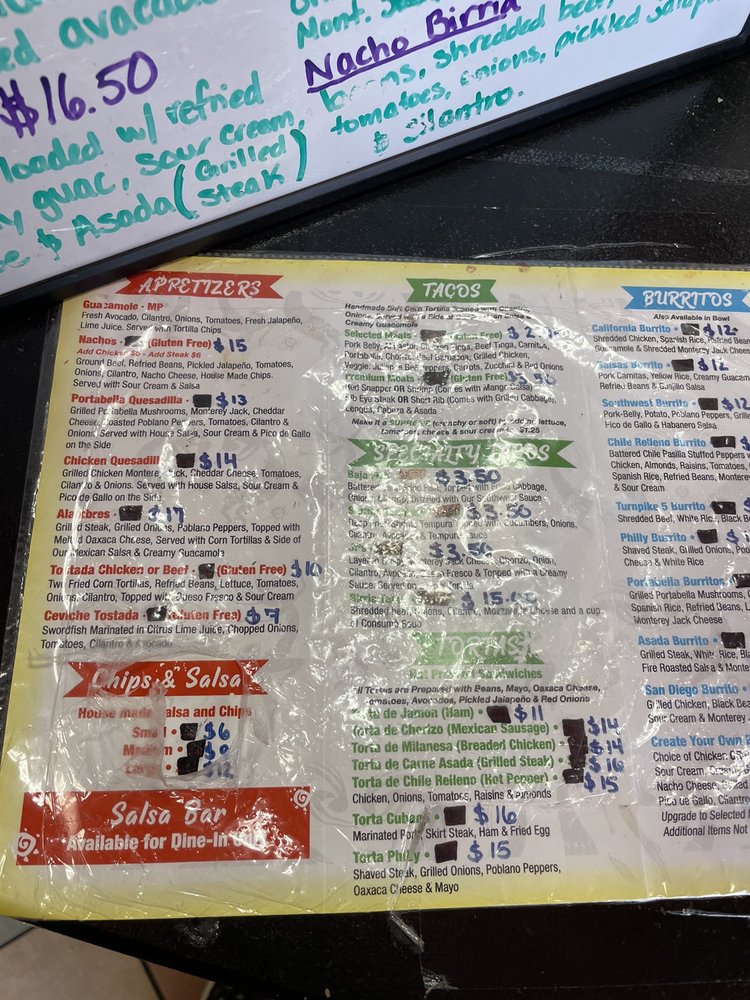 ed avocad
$16.50
loaded w/ refried
guac, sour cream,
& Asada (Grilled
steak)
Mont.
Nacho Birria
beans, shredded beef,
tomatoes, onions, pickled
& Silantro.
APPETIZERS
Guacamole • MP
Fresh Avocado, Cilantro, Onions, Tomatoes, Fresh Jalapeño,
Lime Juice. Served with Tortilla Chips
Nachos • (Gluten Free) $15
Add Chicken $5 - Add Steak $6
Ground Beef, Refried Beans, Pickled Jalapeño, Tomatoes,
Onions, Cilantro, Nacho Cheese, House Made Chips.
Served with Sour Cream & Salsa
Portabella Quesadilla • $13
Grilled Portabella Mushrooms, Monterey Jack, Cheddar
Cheese, Roasted Poblano Peppers, Tomatoes, Cilantro &
Onions. Served with House Salsa, Sour Cream & Pico de Gallo
on the Side
Chicken Quesadilla $14
Grilled Chicken Monterey Jack, Cheddar Cheese, Tomatoes,
Cilantro & Onions. Served with House Salsa, Sour Cream &
Pico de Gallo on the Side
Alambres • $17
Grilled Steak, Grilled Onions, Poblano Peppers, Topped with
Melted Oaxaca Cheese, Served with Corn Tortillas & Side of
Our Mexican Salsa & Creamy Guacamole
Tostada Chicken or Beef • (Gluten Free) $10
Two Fried Corn Tortillas, Refried Beans, Lettuce, Tomatoes,
Onions, Cilantro, Topped with Queso Fresco & Sour Cream
Ceviche Tostada • (Gluten Free) $7
Swordfish Marinated in Citrus Lime Juice, Chopped Onions,
Tomatoes, Cilantro & Avocado
Chips & Salsa
House made Salsa and Chips
Small • $6
Medium •
Large $12
Salsa Bar
Available for Dine-In Only
TACOS
Handmade Soft Corn Tortilla Topped with Cilantro,
Onions, Served with a Side of
Creamy Guacamole
Selected Meats • (Gluten Free)
Pork Belly, Al Pastor, Beef Tinga, Carnitas,
Portabella, Chorizo, Grilled Chicken,
Veggie: Peppers, Carrots, Zucchini & Red Onions
Premium Meats • (Gluten Free)
Red Snapper OR Shrimp (Comes with Mango Salsa)
Rib Eye steak OR Short Rib (Comes with Grilled Cabbage),
Lengua, Cabeza & Asada
Make it a SUPREME (crunchy or soft) by adding lettuce,
tomatoes, cheese & sour cream $1.25
SPECIALITY TACOS
Baja $3.50
Battered Fried Fish, Topped with Cabbage,
Onions, Cilantro, Drizzled with Our Southwest Sauce
$3.50
Deep Fried Shrimp Tempura with Cucumbers, Onions,
Cilantro, Avocado & Tempura Sauce
$3.50
Monterey Jack Cheese, Chorizo, Onion,
Cilantro, Avocado, Queso Fresco & Topped with a Creamy
Sauce. Served on
Birria $15.
Shredded beef, onions, Cilantro, Mozzarella Cheese and a cup
of Consumo Soup
TORTAS
Hot Pressed Sandwiches
All Tortas are Prepared with Beans, Mayo, Oaxaca Cheese,
Tomatoes, Avocados, Pickled Jalapeño & Red Onions
Torta de Jamon (Ham) • $11
Torta de Chorizo (Mexican Sausage) • $14
Torta de Milanesa (Breaded Chicken) • $14
Torta de Carne Asada (Grilled Steak) • $16
Torta de Chile Relleno (Hot Pepper) • $15
Chicken, Onions, Tomatoes, Raisins & Almonds
Torta Cubana • $16
Marinated Pork, Skirt Steak, Ham & Fried Egg
Torta Philly • $15
Shaved Steak, Grilled Onions, Poblano Peppers,
Oaxaca Cheese & Mayo
BURRITOS
Also Available in Bowl
California Burrito • $12
Shredded Chicken, Spanish Rice, Refried Beans
Guacamole & Shredded Monterey Jack Cheese
Salsas Burrito • $12
Pork Carnitas, Yellow Rice, Creamy Guacam
Refried Beans & Guajillo Salsa
Southwest Burrito • $12
Pork-Belly, Potato, Poblano Peppers, Grille
Pico de Gallo & Habanero Salsa
Chile Relleno Burrito $
Battered Chile Pasilla Stuffed Peppers w
Chicken, Almonds, Raisins, Tomatoes,
Spanish Rice, Refried Beans, Monterey
& Sour Cream
Turnpike 5 Burrito • $
Shredded Beef, White Rice, Black B
Philly Burrito •
Shaved Steak, Grilled Onions, Pob
Cheese & White Rice
Portabella Burritos
Grilled Portabella Mushrooms,
Spanish Rice, Refried Beans, L
Monterey Jack Cheese
Asada Burrito •
Grilled Steak, White Rice, Bla
Fire Roasted Salsa & Monte
San Diego Burrito •
Grilled Chicken, Black Bea
Sour Cream & Monterey
Create Your Own B
Choice of Chicken OR
Sour Cream,
Nacho Cheese, Grilled
Pico de Gallo, Cilantro
Upgrade to Selected
Additional Items Not